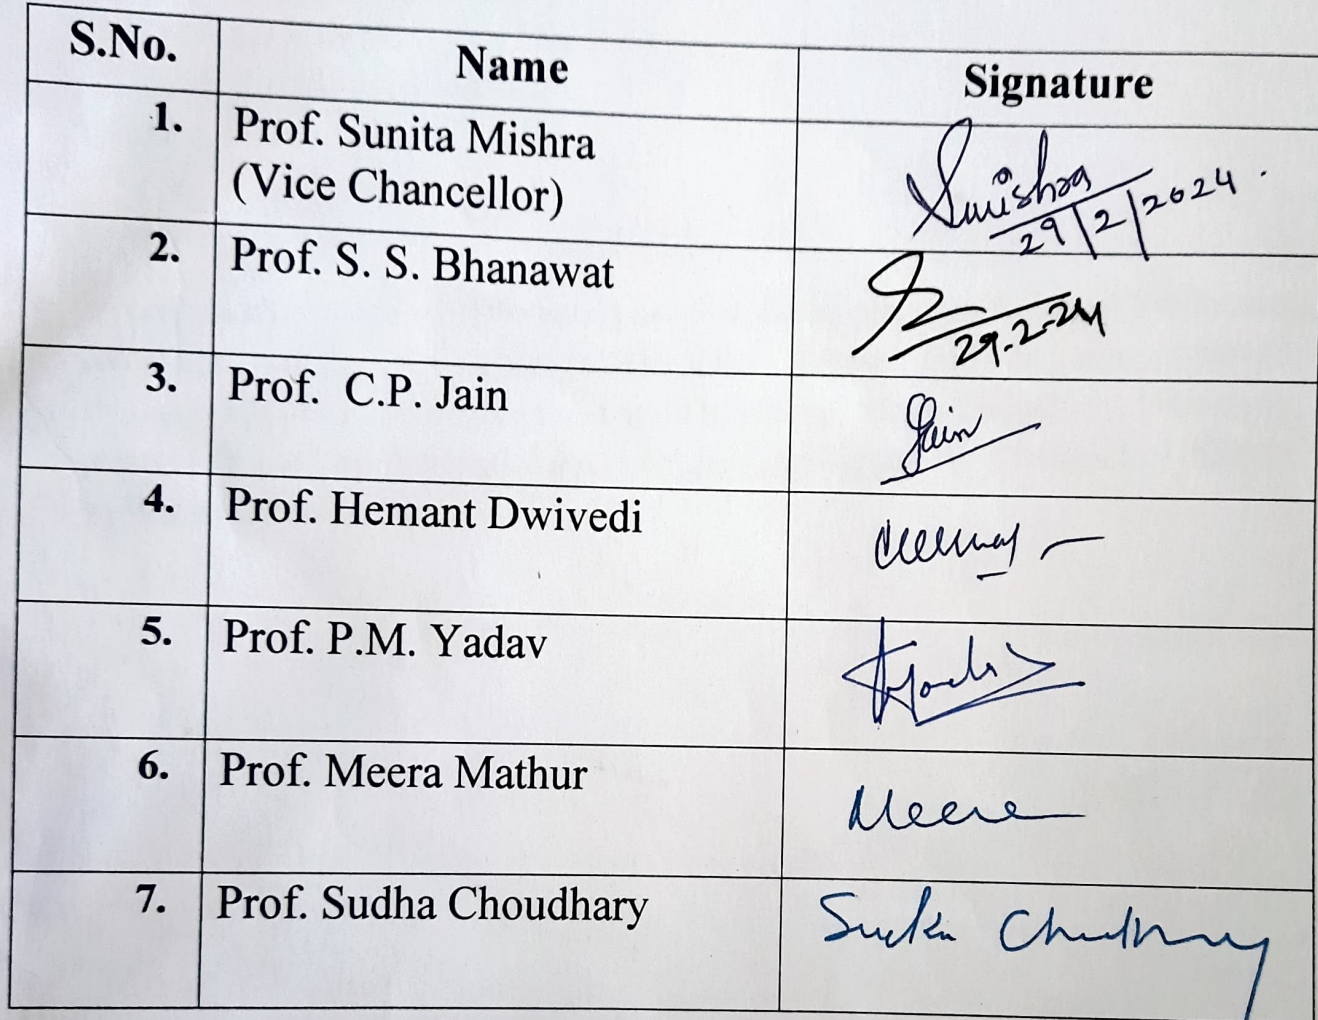 S.No. Name Signature
1. Prof. Sunita Mishra Smishra
(Vice Chancellor) 29/2/2024
2. Prof. S. S. Bhanawat
29.2.24
3. Prof. C.P. Jain Jain
4. Prof. Hemant Dwivedi
5. Prof. P.M. Yadav
6. Prof. Meera Mathur Meera
7. Prof. Sudha Choudhary Sudha Choudhary